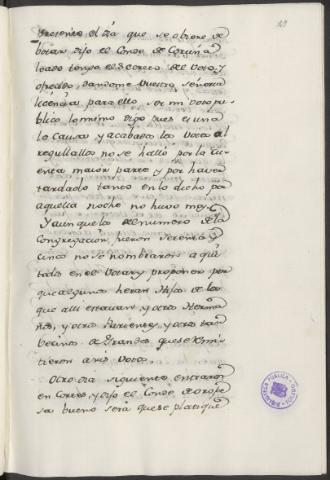 presente el dia que se obiere de
botar, dijo el Conde de Coruña
loado tengo el secreto del Voto, y
ofrecido, dandome Vuestra señoria
licencia para ello de mi voto pu
blico lo mismo digo pues es una
la causa y acabados los Votos al
regullallos no se hallo por la cu
enta maior parte y por haver
tardado tanto en lo dicho por
aquella noche no huvo mas.
Y aunque los del numero de la
Congregacion heran setenta y
cinco no se nombraron a qui
todos en el Votar y proponer por
que algunos heran Hijos de los
que alli estavan, y otros Herma
nos, y otros Parientes, y otros tan
Vecinos de Grandes que se remi
tieron a sus Votos.
Otro dia siguiente entraron
en Cortes, y dijo el Conde de orope
sa bueno sera que se platique